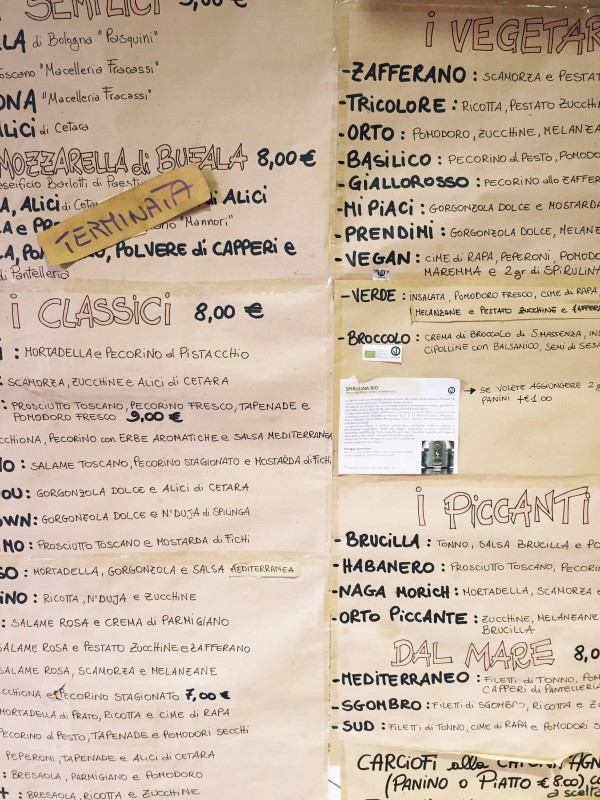 SEMPLICI 5,00 €
LLA di Bologna "Pasquini"
Toscano "Macelleria Fracassi"
ONA "Macelleria Fracassi"
ALICI di Cetara
MOZZARELLA di BUFALA 8,00 €
Caseificio Barlotti di Paest
A, ALICI di Ceta di ALICI
A e PR "Mannori"
TERMINATA
A, POM O, POLVERE di CAPPERI e
di Pantelleria
I CLASSICI 8,00 €
: MORTADELLA e PECORINO al PISTACCHIO
: SCAMORZA, ZUCCHINE e ALICI di CETARA
: PROSCIUTTO TOSCANO, PECORINO FRESCO, TAPENADE e
POMODORO FRESCO 9,00 €
CCHIONA, PECORINO con ERBE AROMATICHE e SALSA MEDITERRANEA
O: SALAME TOSCANO, PECORINO STAGIONATO e MOSTARDA di FICHI
OU: GORGONZOLA DOLCE e ALICI di CETARA
OWN: GORGONZOLA DOLCE e N'DUJA di SPILINGA
MO: PROSCIUTTO TOSCANO e MOSTARDA di FICHI
SO: MORTADELLA, GORGONZOLA e SALSA MEDITERRANEA
INO: RICOTTA, N'DUJA e ZUCCHINE
: SALAME ROSA e CREMA di PARMIGIANO
SALAME ROSA e PESTATO ZUCCHINE e ZAFFERANO
SALAME ROSA, SCAMORZA e MELANZANE
CCHIONA e PECORINO STAGIONATO 7,00 €
MORTADELLA di PRATO, RICOTTA e CIME di RAPA
PECORINO al PESTO, TAPENADE e POMODORI SECCHI
PEPERONI, TAPENADE e ALICI di CETARA
: BRESAOLA, PARMIGIANO e POMODORO
+ : BRESAOLA, RICOTTA e ZUCCHINE
I VEGETAR
-ZAFFERANO: SCAMORZA e PESTAT
-TRICOLORE: RICOTTA, PESTATO ZUCCHIN
-ORTO: POMODORO, ZUCCHINE, MELANZA
-BASILICO: PECORINO al PESTO, POMODO
-GIALLOROSSO: PECORINO allo ZAFFER
-MI PIACI: GORGONZOLA DOLCE e MOSTARDA
-PRENDIMI: GORGONZOLA DOLCE, MELANZ
-VEGAN: CIME di RAPA, PEPERONI, POMODO
MAREMMA e 2 gr di SPIRULINA
-VERDE: INSALATA, POMODORO FRESCO, CIME di RAPA
MELANZANE e PESTATO ZUCCHINE e ZAFFERA
-BROCCOLO: CREMA di BROCCOLO di S.MASSENZA, INS
CIPOLLINE con BALSAMICO, SEMI di SESA
SPIRULINA BIO
→ SE VOLETE AGGIUNGERE 2g
PANINI +€1.00
I PICCANTI
-BRUCILLA: TONNO, SALSA BRUCILLA e PO
-HABANERO: PROSCIUTTO TOSCANO, PECORIN
-NAGA MORICH: MORTADELLA, SCAMORZA e
-ORTO PICCANTE: ZUCCHINE, MELANZANE
BRUCILLA
DAL MARE 8,0
-MEDITERRANEO: FILETTI di TONNO, POM
CAPPERI di PANTELLERIA
-SGOMBRO: FILETTI di SGOMBRO, RICOTTA e ZU
-SUD: FILETTI di TONNO, CIME di RAPA e POMODORI S
CARCIOFI alla
(PANINO o PIATTO €8.00), co
a scelta